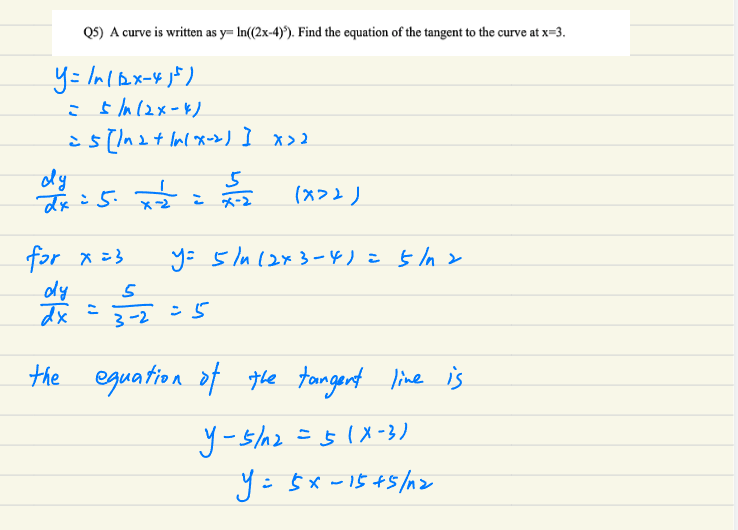 Q5) A curve is written as y= ln((2x-4)⁵). Find the equation of the tangent to the curve at x=3.
y= ln((2x-4)⁵)
= 5 ln(2x-4)
= 5 [ln2 + ln(x-2)] x>2
dy/dx = 5· 1/(x-2) = 5/(x-2) (x>2)
for x=3 y= 5 ln(2×3-4) = 5 ln 2
dy/dx = 5/(3-2) = 5
the equation of the tangent line is
y-5ln2 = 5(x-3)
y= 5x-15+5ln2